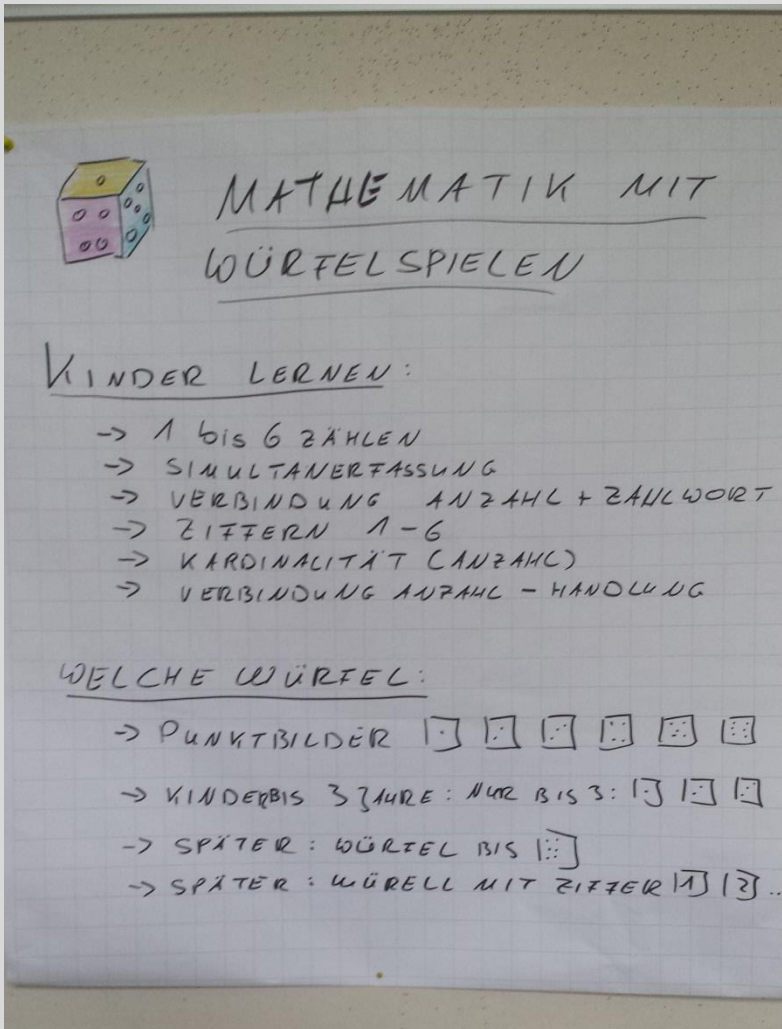 MATHEMATIK MIT
WÜRFELSPIELEN
KINDER LERNEN:
-> 1 bis 6 ZÄHLEN
-> SIMULTANERFASSUNG
-> VERBINDUNG ANZAHL + ZAHLWORT
-> ZIFFERN 1-6
-> KARDINALITÄT (ANZAHL)
-> VERBINDUNG ANZAHL - HANDLUNG
WELCHE WÜRFEL:
-> PUNKTBILDER
-> KINDER BIS 3 JAHRE: NUR BIS 3:
-> SPÄTER: WÜRFEL BIS
-> SPÄTER: WÜRELL MIT ZIFFER 1 2 ...